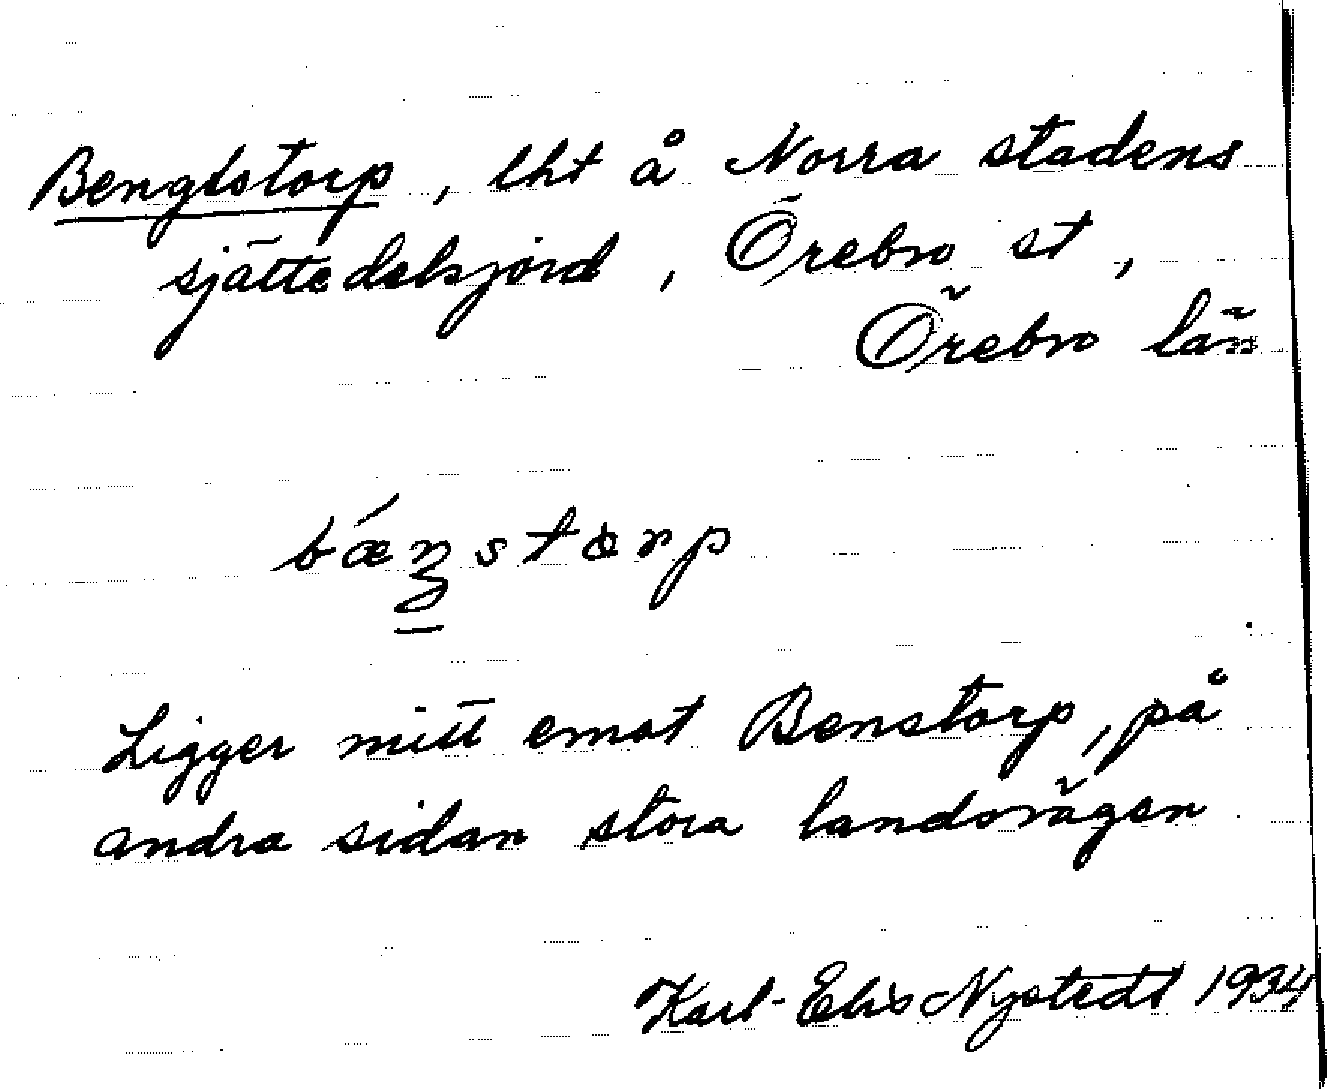 Bengtstorp, lht å Norra stadens
sjättedelsjord, Örebro st,
Örebro län
Ligger mitt emot Benstorp, på
andra sidan stora landsvägen.
Karl-Elis Nystedt 1934